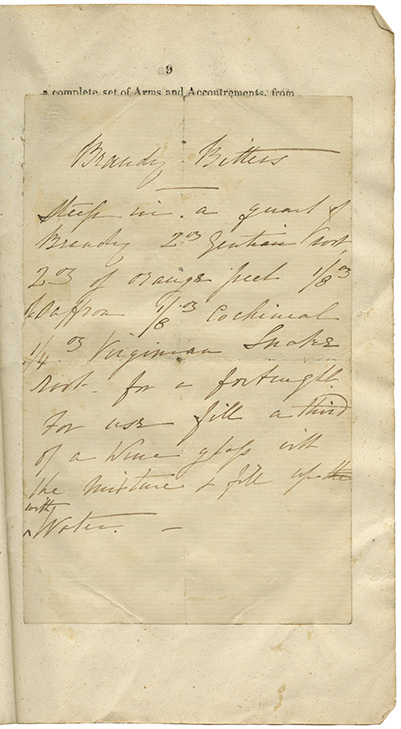 9
a complete set of Arms and Accoutrements, from
Brandy - Bitters
Steep in a quart of
Brandy 2 oz Gentian root
2 oz of orange peel 1/8 oz
Saffron 1/8 oz Cochineal
1/4 oz Virginian Snake
root. for a fortnight.
For use fill a third
of a Wine glass with
the mixture & fill up the
with
^ Water. —